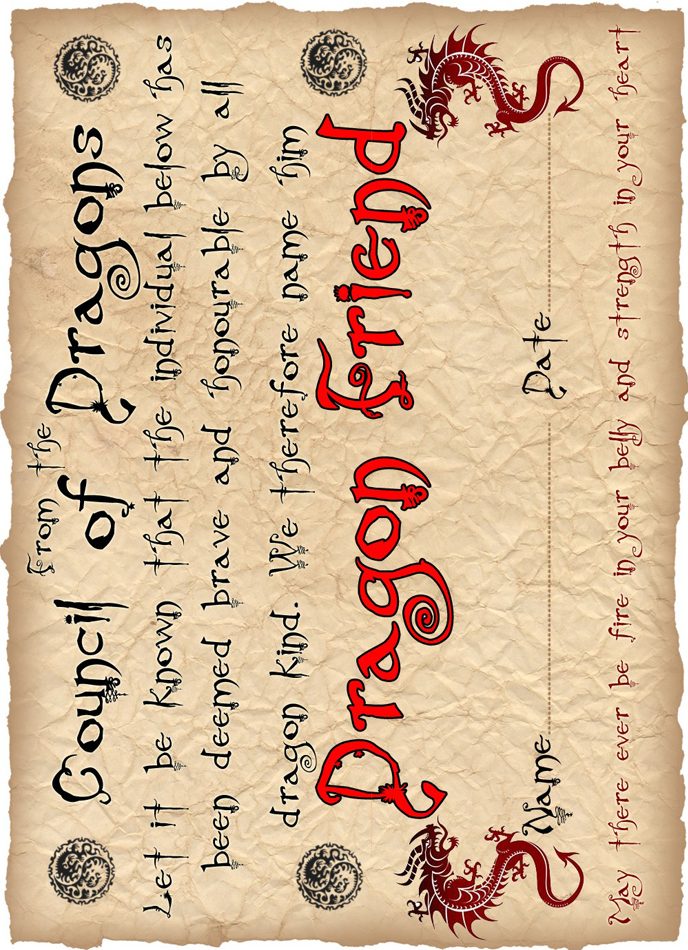 From the
Council of Dragons
Let it be known that the individual below has
been deemed brave and honourable by all
dragon kind. We therefore name him
Dragon Friend
Name Date
May there ever be fire in your belly and strength in your heart